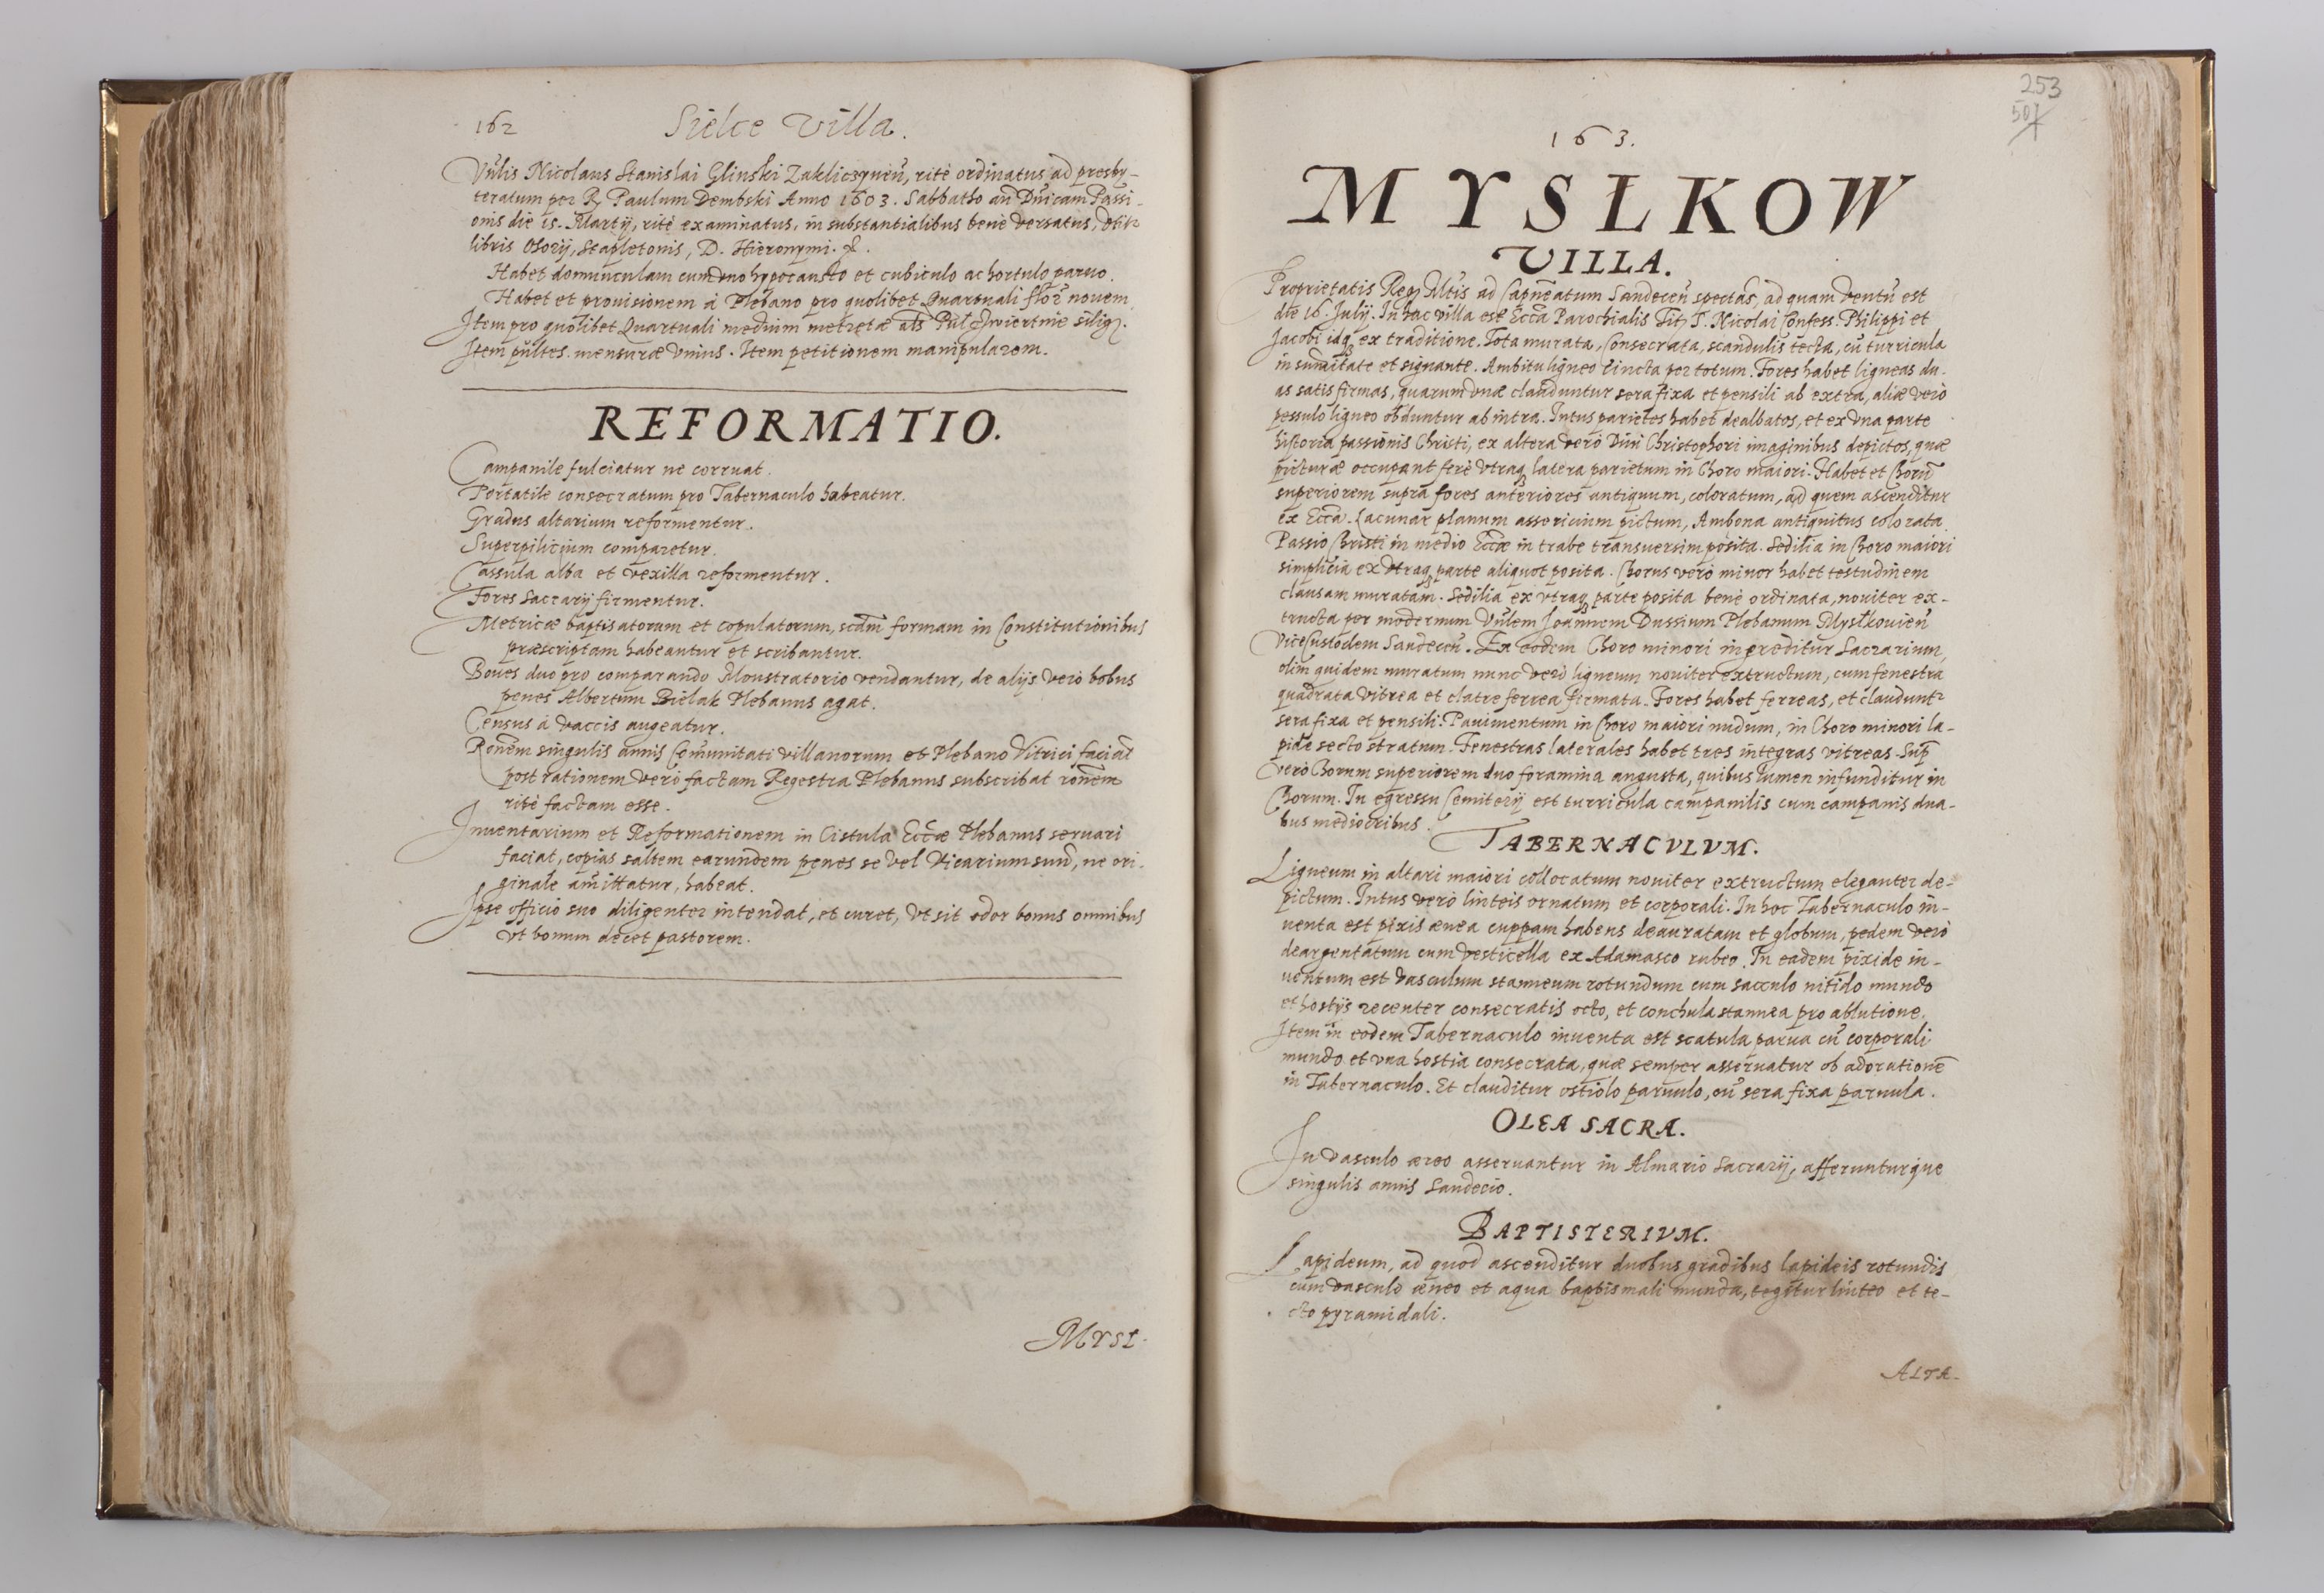 162 Sielce Villa.
Vńlis Nicolaus Stanislai Glinski Zakliczyneń, ritè ordinatus ad presby-
teratum per R. Paulum Dembski Anno 1603. Sabbatho añ Dńicam Passi-
onis die 15. Martij, ritè examinatus, in substantialibus benè versatus,
libris Osorij, Stapletonis, D. Hieronymi. &.
Habet domunculam cum vno hypocausto et cubiculo ac hortulo paruo.
Habet et prouisionem à Plebano pro quolibet Quartuali flor nouem
Item pro quolibet Quartuali medium metretæ als Pul Cwiertnie silig.
Item pultes mensuræ vnius. Item petitionem manipularem.
REFORMATIO.
Campanile fulciatur ne corruat.
Portatile consecratum pro Tabernaculo habeatur.
Gradus altarium reformentur.
Superpilicium comparetur.
Cassula alba et vexilla reformentur.
Fores Sacrarij firmentur.
Metricæ baptisatorum et copulatorum, scdm formam in Constitutionibus
præscriptam habeantur et scribantur.
Boues duo pro comparando Monstratorio vendantur, de alijs verò bobus
penes Albertum Bielak Plebanus agat.
Census à vaccis augeatur.
Ronem singulis annis Comunitati villanorum et Plebano Vitrici faciat
post rationem verò factam Regestra Plebanus subscribat ronem
ritè factam esse.
Inuentarium et Reformationem in Cistula Eccæ Plebanus seruari
faciat, copias saltem earundem penes se vel Vicarium suum, ne ori-
ginale amittatur, habeat.
Ipse officio suo diligenter intendat, et curet, vt sit odor bonus omnibus
vt bonum decet pastorem.
MYSL-
253
507
163.
MYSLKOW
VILLA.
Proprietatis Reg Mtis ad Capneatum Sandeceń spectas, ad quam ventū est
die 16. Julij. In hac villa est Ecca Parochialis Tit S. Nicolai Confess. Philippi et
Jacobi idq ex traditione. Tota murata, Consecrata, scandulis tecta, cū turricula
in sumitate et signante. Ambitu ligneo cincta per totum. Fores habet ligneas du-
as satis firmas, quarum vnæ clauduntur sera fixa et pensili ab extra, aliæ verò
pessulo ligneo obduntur ab intra. Intus parietes habet dealbatos, et ex vna parte
historia passionis Christi, ex altera verò Diui Christophori imaginibus depictos, quæ
picturæ occupant ferè vtraq latera parietum in Choro maiori. Habet et Chorū
superiorem supra fores anteriores antiquum, coloratum, ad quem ascenditur
ex Ecca. Lacunar planum assericium pictum, Ambona antiquitus colorata
Passio Christi in medio Eccæ in trabe transuersim posita. Sedilia in Choro maiori
simplicia ex vtraq parte aliquot posita. Chorus verò minor habet testudinem
clausam muratam. Sedilia ex vtraq parte posita benè ordinata, nouiter ex-
tructa per modernum Vńlem Joannem Dussium Plebanum Myslkouień
ViceCustodem Sandeceń. Ex eodem Choro minori ingreditur Sacrarium,
olim quidem muratum nunc verò ligneum nouiter extructum, cum fenestra
quadrata vitrea et clatre ferrea firmata. Fores habet ferreas, et claudunt
sera fixa et pensili. Pauimentum in Choro maiori nudum, in Choro minori la-
pide secto stratum. Fenestras laterales habet tres integras vitreas. Sup
verò Chorum superiorem duo foramina angusta, quibus lumen infunditur in
Chorum. In egressu Cemiterij est turricula campanilis cum campanis dua-
bus mediocribus.
TABERNACVLVM.
Ligneum in altari maiori collocatum nouiter extructum eleganter de-
pictum. Intus verò linteis ornatum et corporali. In hoc Tabernaculo in-
uenta est pixis ænea cuppam habens deauratam et globum, pedem verò
deargentatum cum vesticella ex Adamasco rubeo. In eadem pixide in-
uentum est vasculum stanneum rotundum cum sacculo nitido mundo
et hostijs recenter consecratis octo, et conchula stannea pro ablutione.
Item in eodem Tabernaculo inuenta est scatula parua cū corporali
mundo et vna hostia consecrata, quæ semper asseruatur ob adorationē
in Tabernaculo. Et clauditur ostiolo paruulo, cū sera fixa paruula.
OLEA SACRA.
In vasculo æreo asseruantur in Almario Sacrarij, afferunturque
singulis annis Sandecio.
BAPTISTERIVM.
Lapideum, ad quod ascenditur duobus gradibus lapideis rotundis
cum vasculo æneo et aqua baptismali munda, tegitur linteo et te-
cto pyramidali.
ALTA-